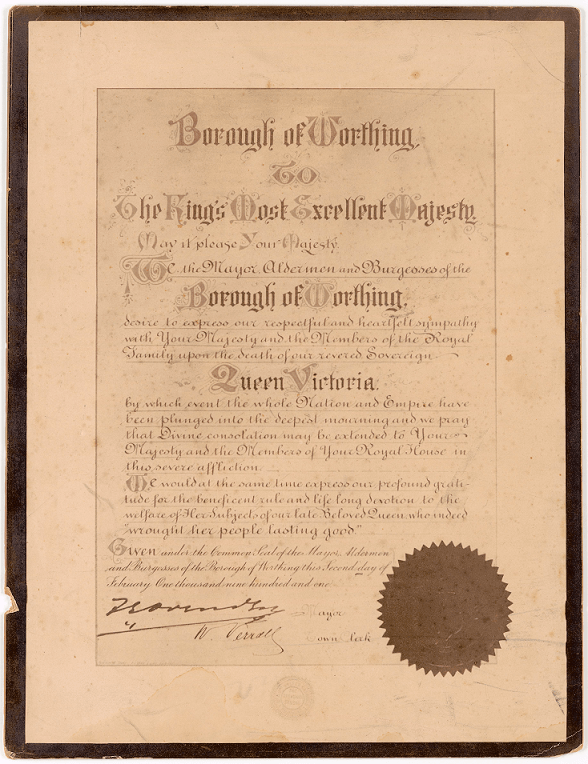 Borough of Worthing,
TO
The King's Most Excellent Majesty.
May it please Your Majesty.
We the Mayor, Aldermen and Burgesses of the
Borough of Worthing,
desire to express our respectful and heartfelt sympathy
with Your Majesty and the Members of the Royal
Family upon the death of our revered Sovereign
Queen Victoria,
by which event the whole Nation and Empire have
been plunged into the deepest mourning and we pray
that Divine consolation may be extended to Your
Majesty and the Members of Your Royal House in
this severe affliction.
We would at the same time express our profound grati-
tude for the beneficent rule and life long devotion to the
welfare of Her Subjects of our late Beloved Queen who indeed
"wrought her people lasting good."
Given under the Common Seal of the Mayor, Aldermen
and Burgesses of the Borough of Worthing this Second day of
February One thousand nine hundred and one
Mayor
W. Verrall Town Clerk